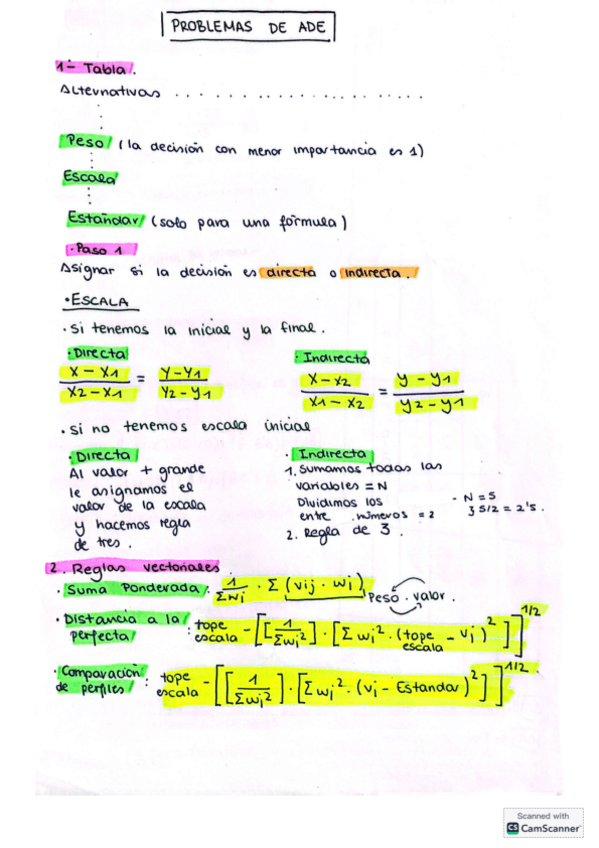 PROBLEMAS DE ADE
1- Tabla.
Alternativas . . . . . . . . . . . . . . . . . . . . . . .
Peso (la decisión con menor importancia es 1)
Escala
Estándar (solo para una fórmula)
· Paso 1
Asignar si la decisión es directa o indirecta.
• ESCALA
· si tenemos la inicial y la final.
· Directa
(x - x1)/(x2 - x1) = (y - y1)/(y2 - y1)
· Indirecta
(x - x2)/(x1 - x2) = (y - y1)/(y2 - y1)
· si no tenemos escala inicial
· Directa
Al valor + grande
le asignamos el
valor de la escala
y hacemos regla
de tres.
· Indirecta
1. Sumamos todas las
variables = N
Dividimos los
entre números = 2
2. Regla de 3.
- N = 5
5/2 = 2'5.
2. Reglas vectoriales.
· Suma Ponderada: 1/ΣWi · Σ (vij · wi)
Peso · valor.
· Distancia a la perfecta: tope escala - [[1/Σwi²] · [Σ wi² · (tope escala - vi)²]]^1/2
· Comparación de perfiles: tope escala - [[1/Σwi²] · [Σ wi² · (vi - Estandar)²]]^1/2
Scanned with
CS CamScanner